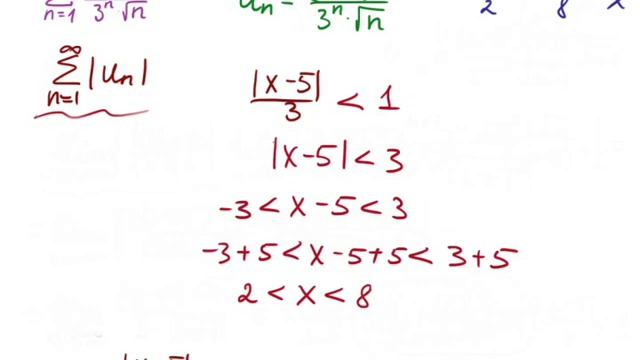 n=1 3ⁿ √n
uₙ = 3ⁿ·√n
2 8 x
∞
∑ |uₙ|
n=1
|x-5|/3 < 1
|x-5| < 3
-3 < x - 5 < 3
-3+5 < x-5+5 < 3+5
2 < x < 8